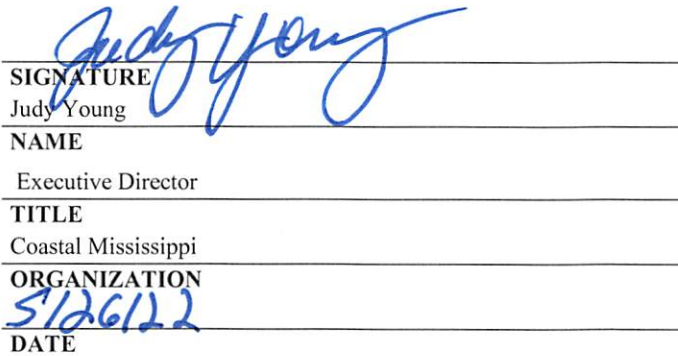 Judy Young
SIGNATURE
Judy Young
NAME
Executive Director
TITLE
Coastal Mississippi
ORGANIZATION
5/26/22
DATE